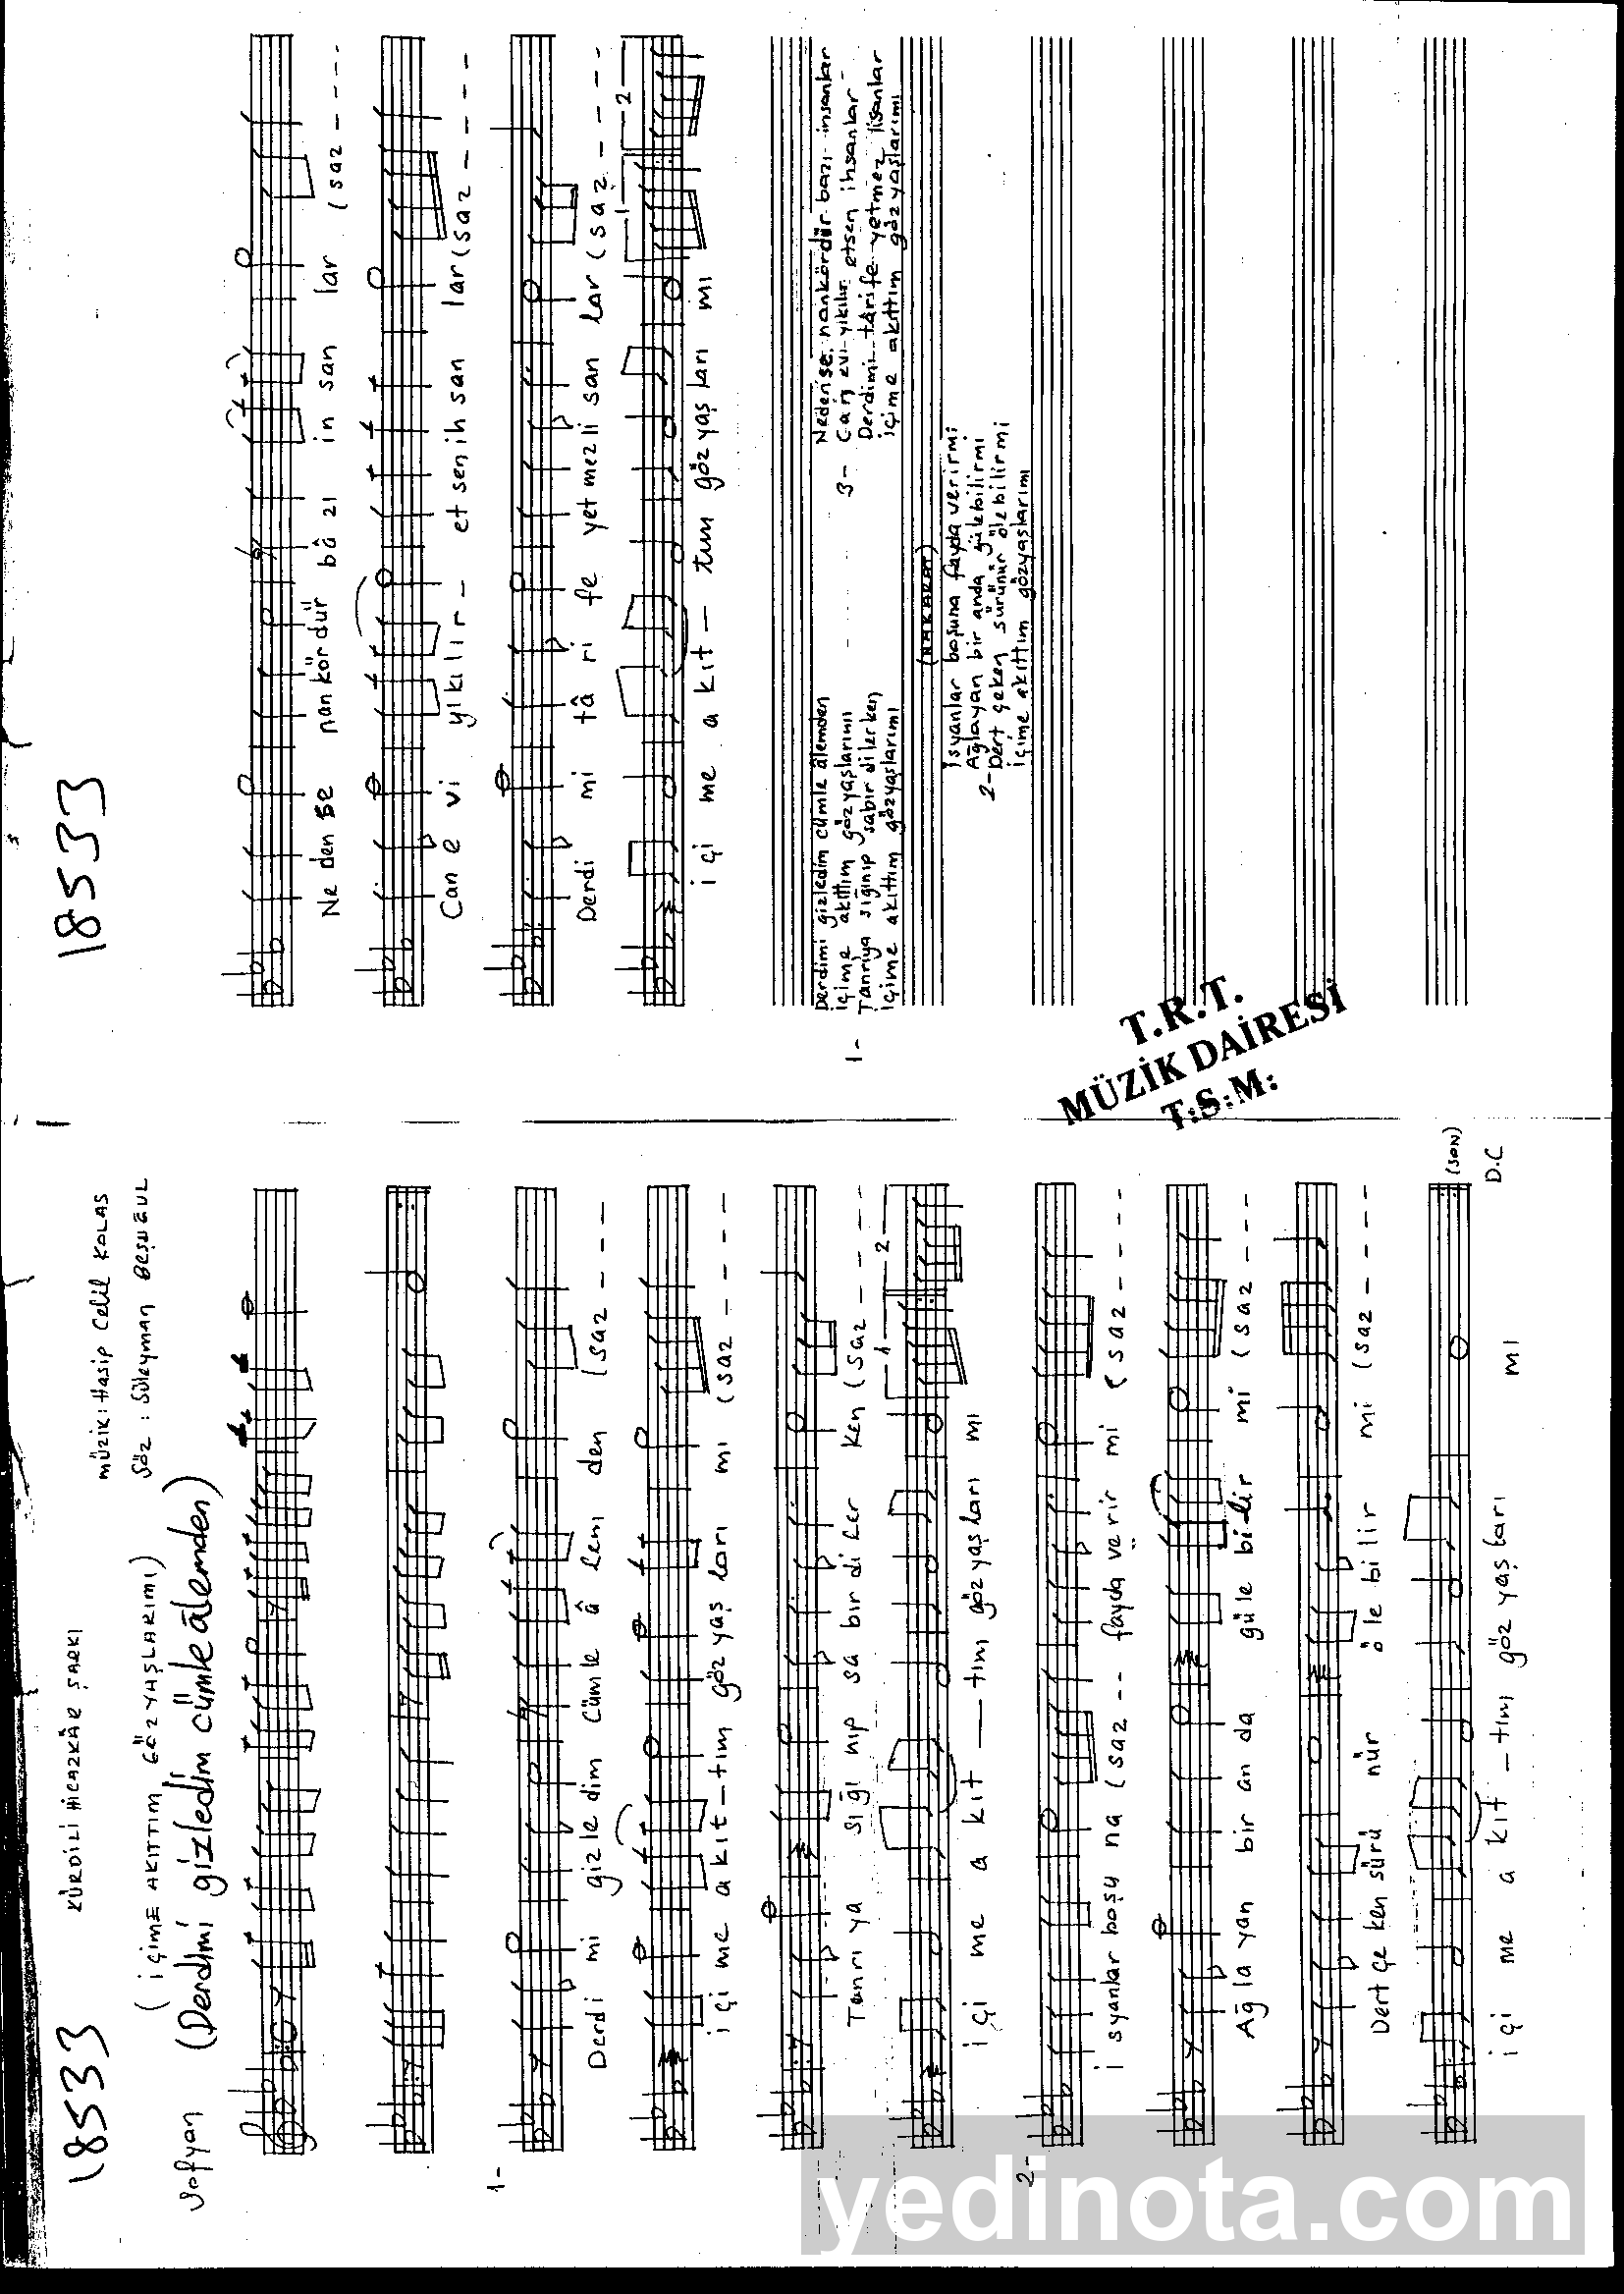 18533
KÜRDİLİ HİCAZKÂR ŞARKI
MÜZİK: Hasip Celil KOLAS
SÖZ: Süleyman BEŞUĞUL
(İÇİME AKITTIM GÖZYAŞLARIMI)
Sofyan
(Derdimi gizledim cümle âlemden)
1-
Derdi mi gizle dim cümle â lem den (saz - - - -
İ çi me a kıt - tım göz yaş ları mı (saz - - - -
Tanrı ya sığı nıp sa bır di ler ken (saz - - - -
1 2
İ çi me a kıt — tım göz yaşları mı
2-
İ syanlar boşu na (saz - - fayda verir mi (saz - - - - -
Ağ la yan bir an da güle bilir mi (saz - - -
Dert çe ken sürü nür ö le bi lir mi (saz - - - -
(SON)
İ çi me a kıt - tım göz yaş ları mı
D.C
18533
Ne den se nankör dür bâ zı in san lar (saz - - - -
Can e vi yıkılır - et sen ih san lar (saz - - - -
Derdi mi tâ ri fe yet mez li san lar (saz - - - -
1 2
İ çi me a kıt - tım göz yaş ları mı
1-
Derdimi gizledim cümle âlemden
İçime akıttım gözyaşlarımı
Tanrıya sığınıp sabır dilerken
İçime akıttım gözyaşlarımı
(NAKARAT)
2-
İsyanlar boşuna fayda verirmi
Ağlayan bir anda gülebilirmi
Dert çeken sürünür ölebilirmi
İçime akıttım gözyaşlarımı
3-
Nedense nankördür bazı insanlar
Can evi yıkılır etsen ihsanlar
Derdimi târife yetmez lisanlar
İçime akıttım gözyaşlarımı
T.R.T.
MÜZİK DAİRESİ
T.S.M:
yedinota.com